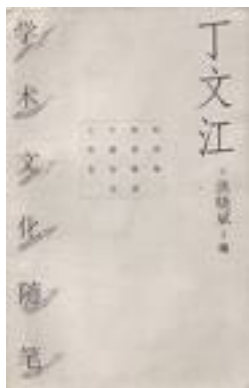 丁文江
洪晓斌 编
学术文化随笔